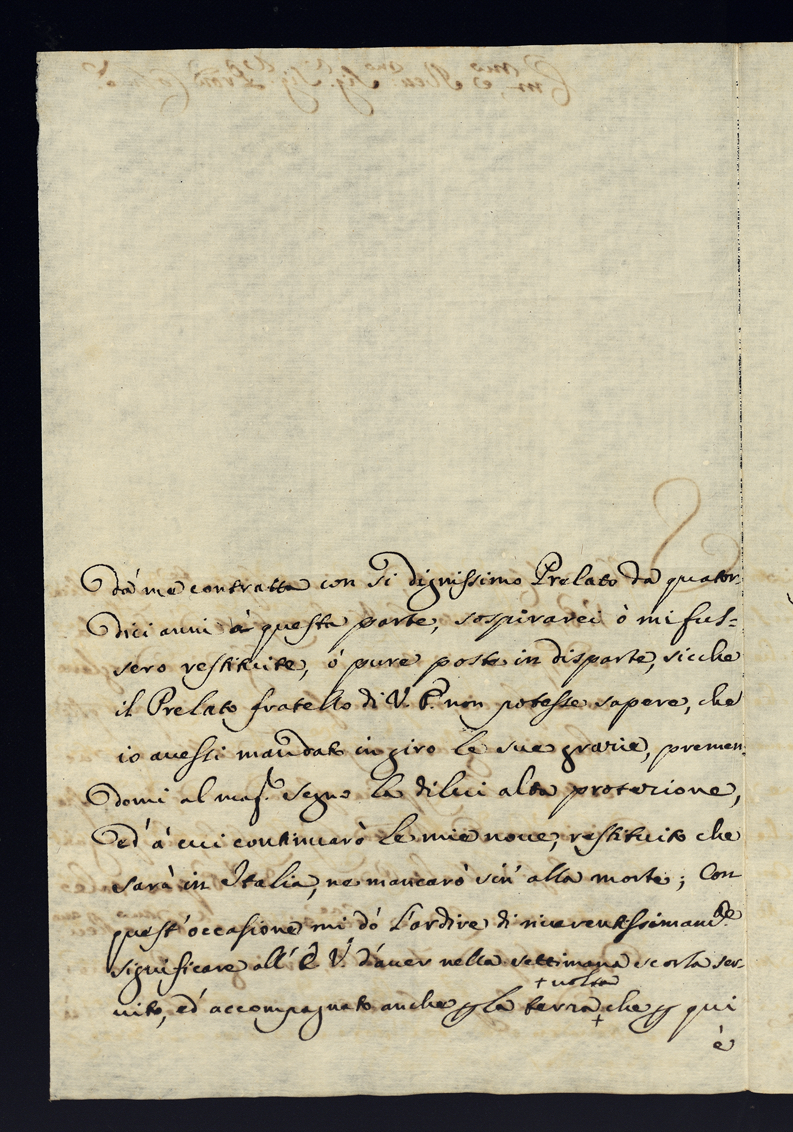 dà me contratta con sì dignissimo Prelato da quator-
dici anni à questa parte, sospirarei ò mi fus=
sero restituite, ò pure poste in disparte, sicche
il Prelato fratello di V. E. non potesse sapere, che
io avessi mandato in giro le sue grazie, premen-
domi al mas.o segno la di lui alta protezione,
ed à cui continuarò le mie nove, restituito che
sarà in Italia, ne mancarò sin' alla morte; Con
quest' occasione mi dò l'ardire di riverentissimam.te
significare all' E. V. d'aver nella settimana scorsa ser-
+ volta
vito, ed accompagnato anche p la terza + che p qui
è